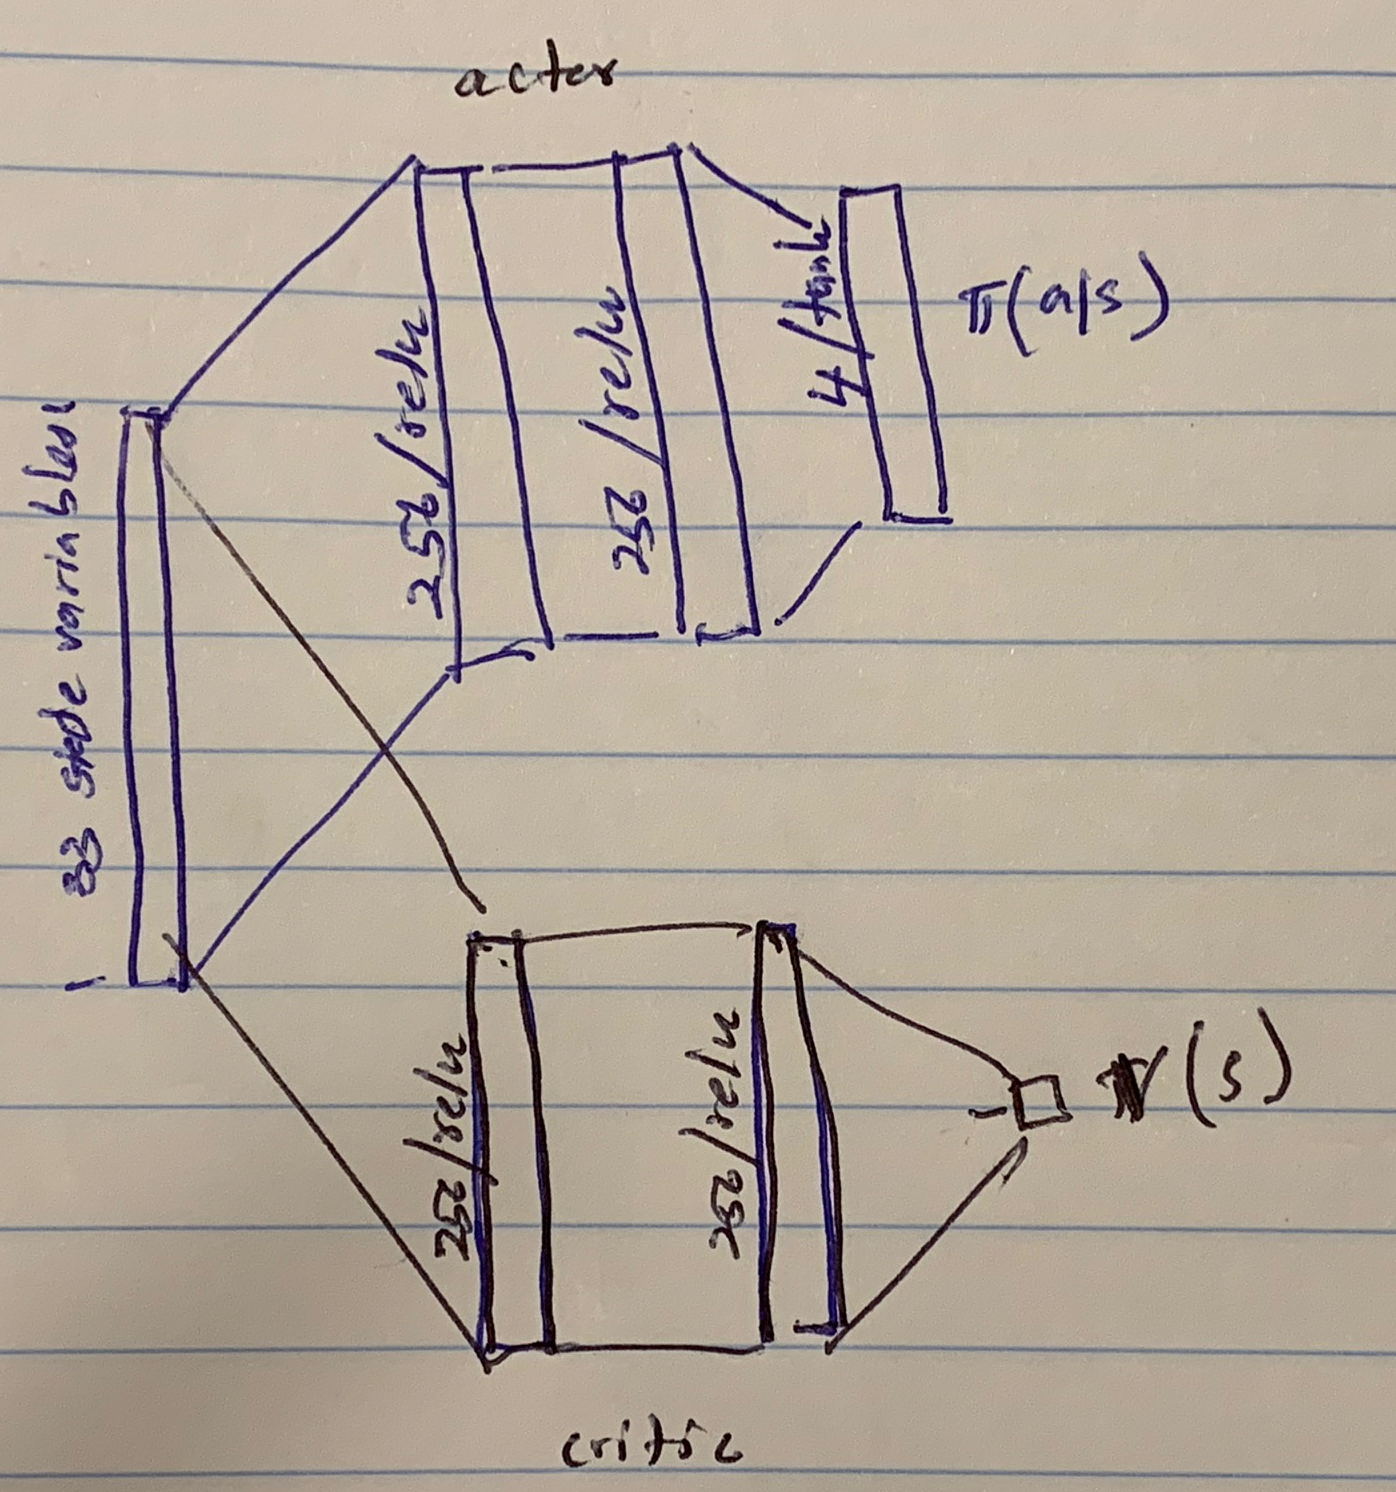 actor
33 state variables
256/relu
256/relu
4/tanh
π(a|s)
256/relu
256/relu
1
V(s)
critic